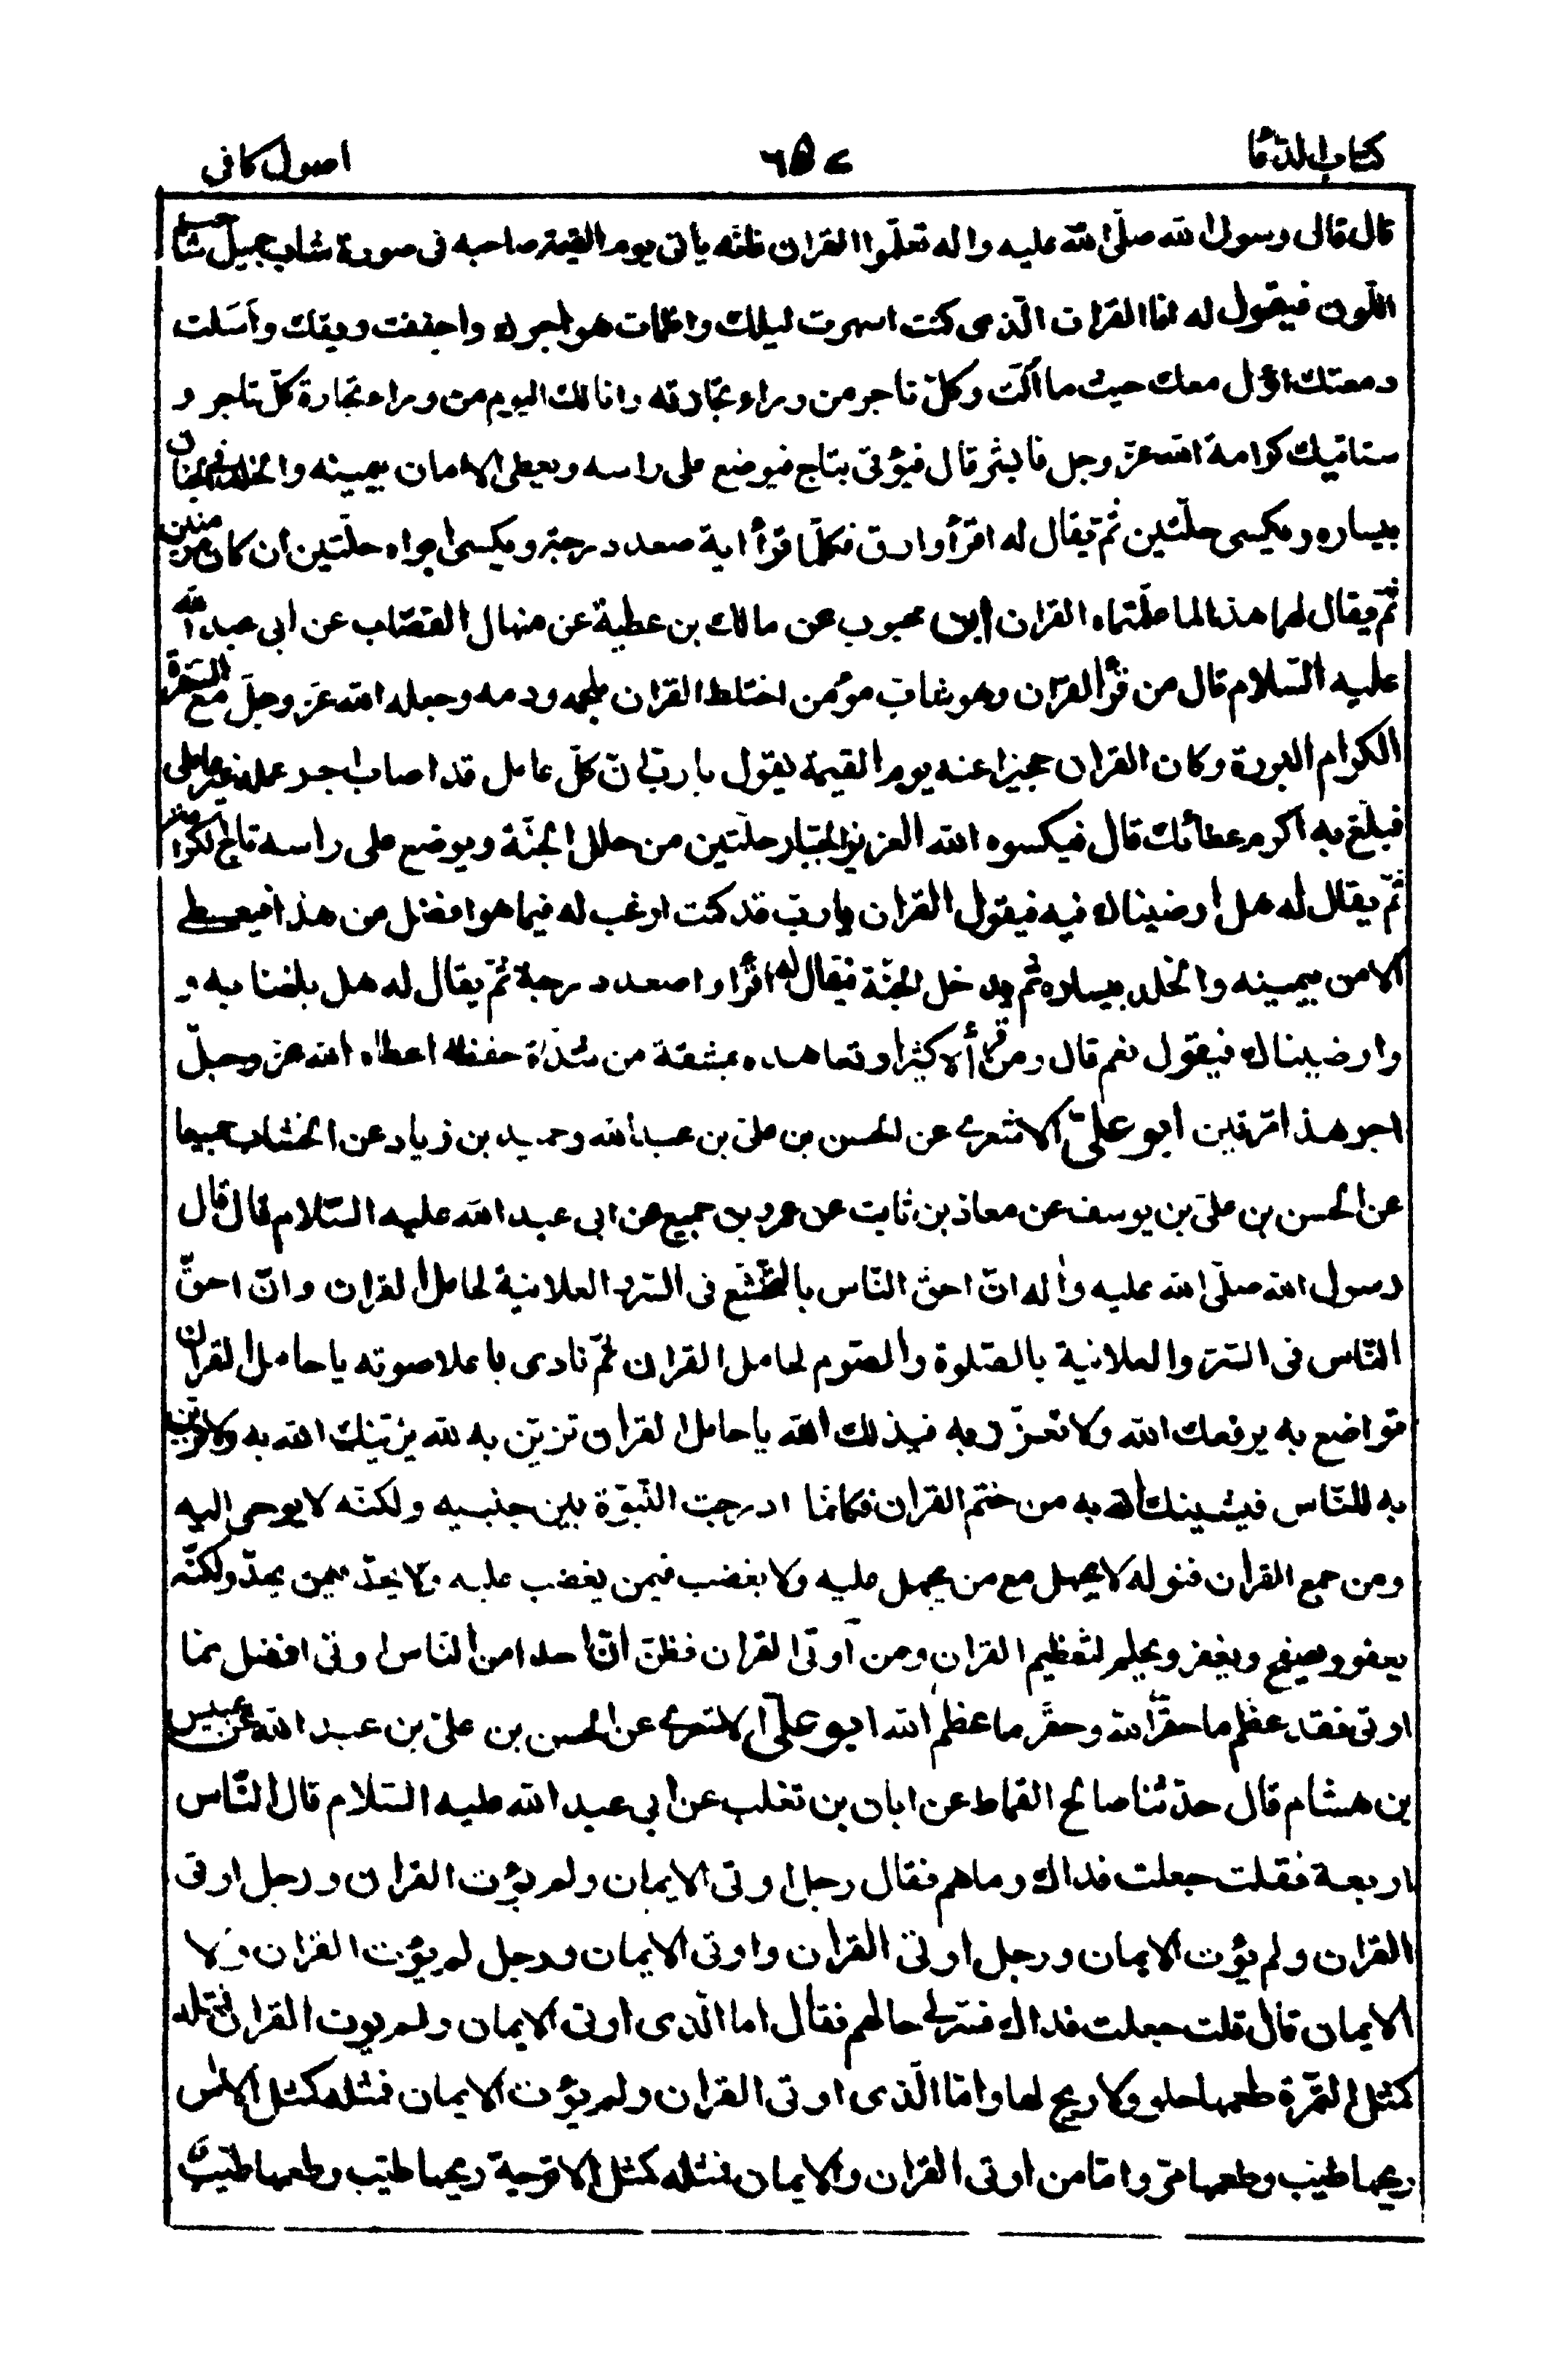 كتاب الدعا
٦٥٧
اصول كافى
قال قال رسول الله صلّى الله عليه واله تعلّموا القران فانّه ياتى يوم القيمة صاحبه فى صورة شاب جميل شاحب
اللّون فيقول له انا القران الّذى كنت اسهرت ليلك واظمات هواجرك واجففت ريقك واسلت
دمعتك اؤل معك حيث ما ألت وكلّ تاجر من وراء تجارته وانا لك اليوم من وراء تجارة كلّ تاجر و
ستاتيك كرامة الله عزّ وجل فابشر قال فيؤتى بتاج فيوضع على راسه ويعطى الامان بيمينه والخلد فى الجنان
بيساره ويكسى حلّتين ثمّ يقال له اقرأ وارق فكلّما قرأ اية صعد درجة ويكسى ابواه حلّتين ان كانا مؤمنين
ثمّ يقال لهما هذا لما علّمتماه القران ابن محبوب عن مالك بن عطية عن منهال القصّاب عن ابى عبد الله
عليه السّلام قال من قرأ القران وهو شابّ مؤمن اختلط القران بلحمه ودمه وجعله الله عزّ وجلّ مع السّفرة
الكرام البررة وكان القران حجيزا عنه يوم القيمة يقول يا ربّ انّ كلّ عامل قد اصاب اجر عمله غير عاملى
فبلّغ به اكرم عطائك قال فيكسوه الله العزيز الجبّار حلّتين من حلل الجنّة ويوضع على راسه تاج الكرامة
ثمّ يقال له هل ارضيناك فيه فيقول القران يا ربّ قد كنت ارغب له فيما هو افضل من هذا فيعطى
الامن بيمينه والخلد بيساره ثم يدخل الجنّة فيقال له اقرأ واصعد درجة ثمّ يقال له هل بلغنا به و
وارضيناك فيقول نعم قال ومن قرأه كثيرا وتعاهده بمشقة من شدّة حفظه اعطاه الله عزّ وجلّ
اجر هذا مرّتين ابو علىّ الاشعرى عن الحسن بن على بن عبد الله وحميد بن زياد عن الخشاب جميعا
عن الحسن بن علىّ بن يوسف عن معاذ بن ثابت عن عمرو بن جميع عن ابى عبد الله عليه السّلام قال قال
رسول الله صلّى الله عليه واله انّ احقّ النّاس بالتّخشّع فى السّر والعلانية لحامل القران وانّ احقّ
النّاس فى السّرّ والعلانية بالصّلوة والصّوم لحامل القران ثمّ نادى باعلا صوته يا حامل القران
تواضع به يرفعك الله ولا تعزّز به فيذلك الله يا حامل القران تزيّن به لله يزيّنك الله به ولا تزيّن
به للنّاس فيشينك الله به من ختم القران فكانّما ادرجت النّبوّة بين جنبيه ولكنّه لا يوحى اليه
ومن جمع القران فنوله لا يجهل مع من يجهل عليه ولا يغضب فيمن يغضب عليه ولا يحدّ فيمن يحدّ ولكنّه
يعفو ويصفح ويغفر ويحلم لتعظيم القران ومن اوتى القران فظنّ انّ احدا من النّاس اوتى افضل ممّا
اوتى فقد عظّم ما حقّر الله وحقّر ما عظّم الله ابو علىّ الاشعرى عن الحسن بن علىّ بن عبد الله عن عبيس
بن هشام قال حدّثنا صالح القماط عن ابان بن تغلب عن ابي عبد الله عليه السّلام قال النّاس
اربعة فقلت جعلت فداك وما هم فقال رجل اوتى الايمان ولم يؤت القران ورجل اوتى
القران ولم يؤت الايمان ورجل اوتى القران واوتى الايمان ورجل لم يؤت القران ولا
الايمان قال قلت جعلت فداك فسّر لى حالهم فقال اما الّذى اوتى الايمان ولم يوت القران فمثله
كمثل التمرة طعمها حلو ولا ريح لها وامّا الّذى اوتى القران ولم يؤت الايمان فمثله كمثل الاس
ريحها طيّب وطعمها مرّ وامّا من اوتى القران والايمان فمثله كمثل الاترجة ريحها طيّب وطعمها طيّب